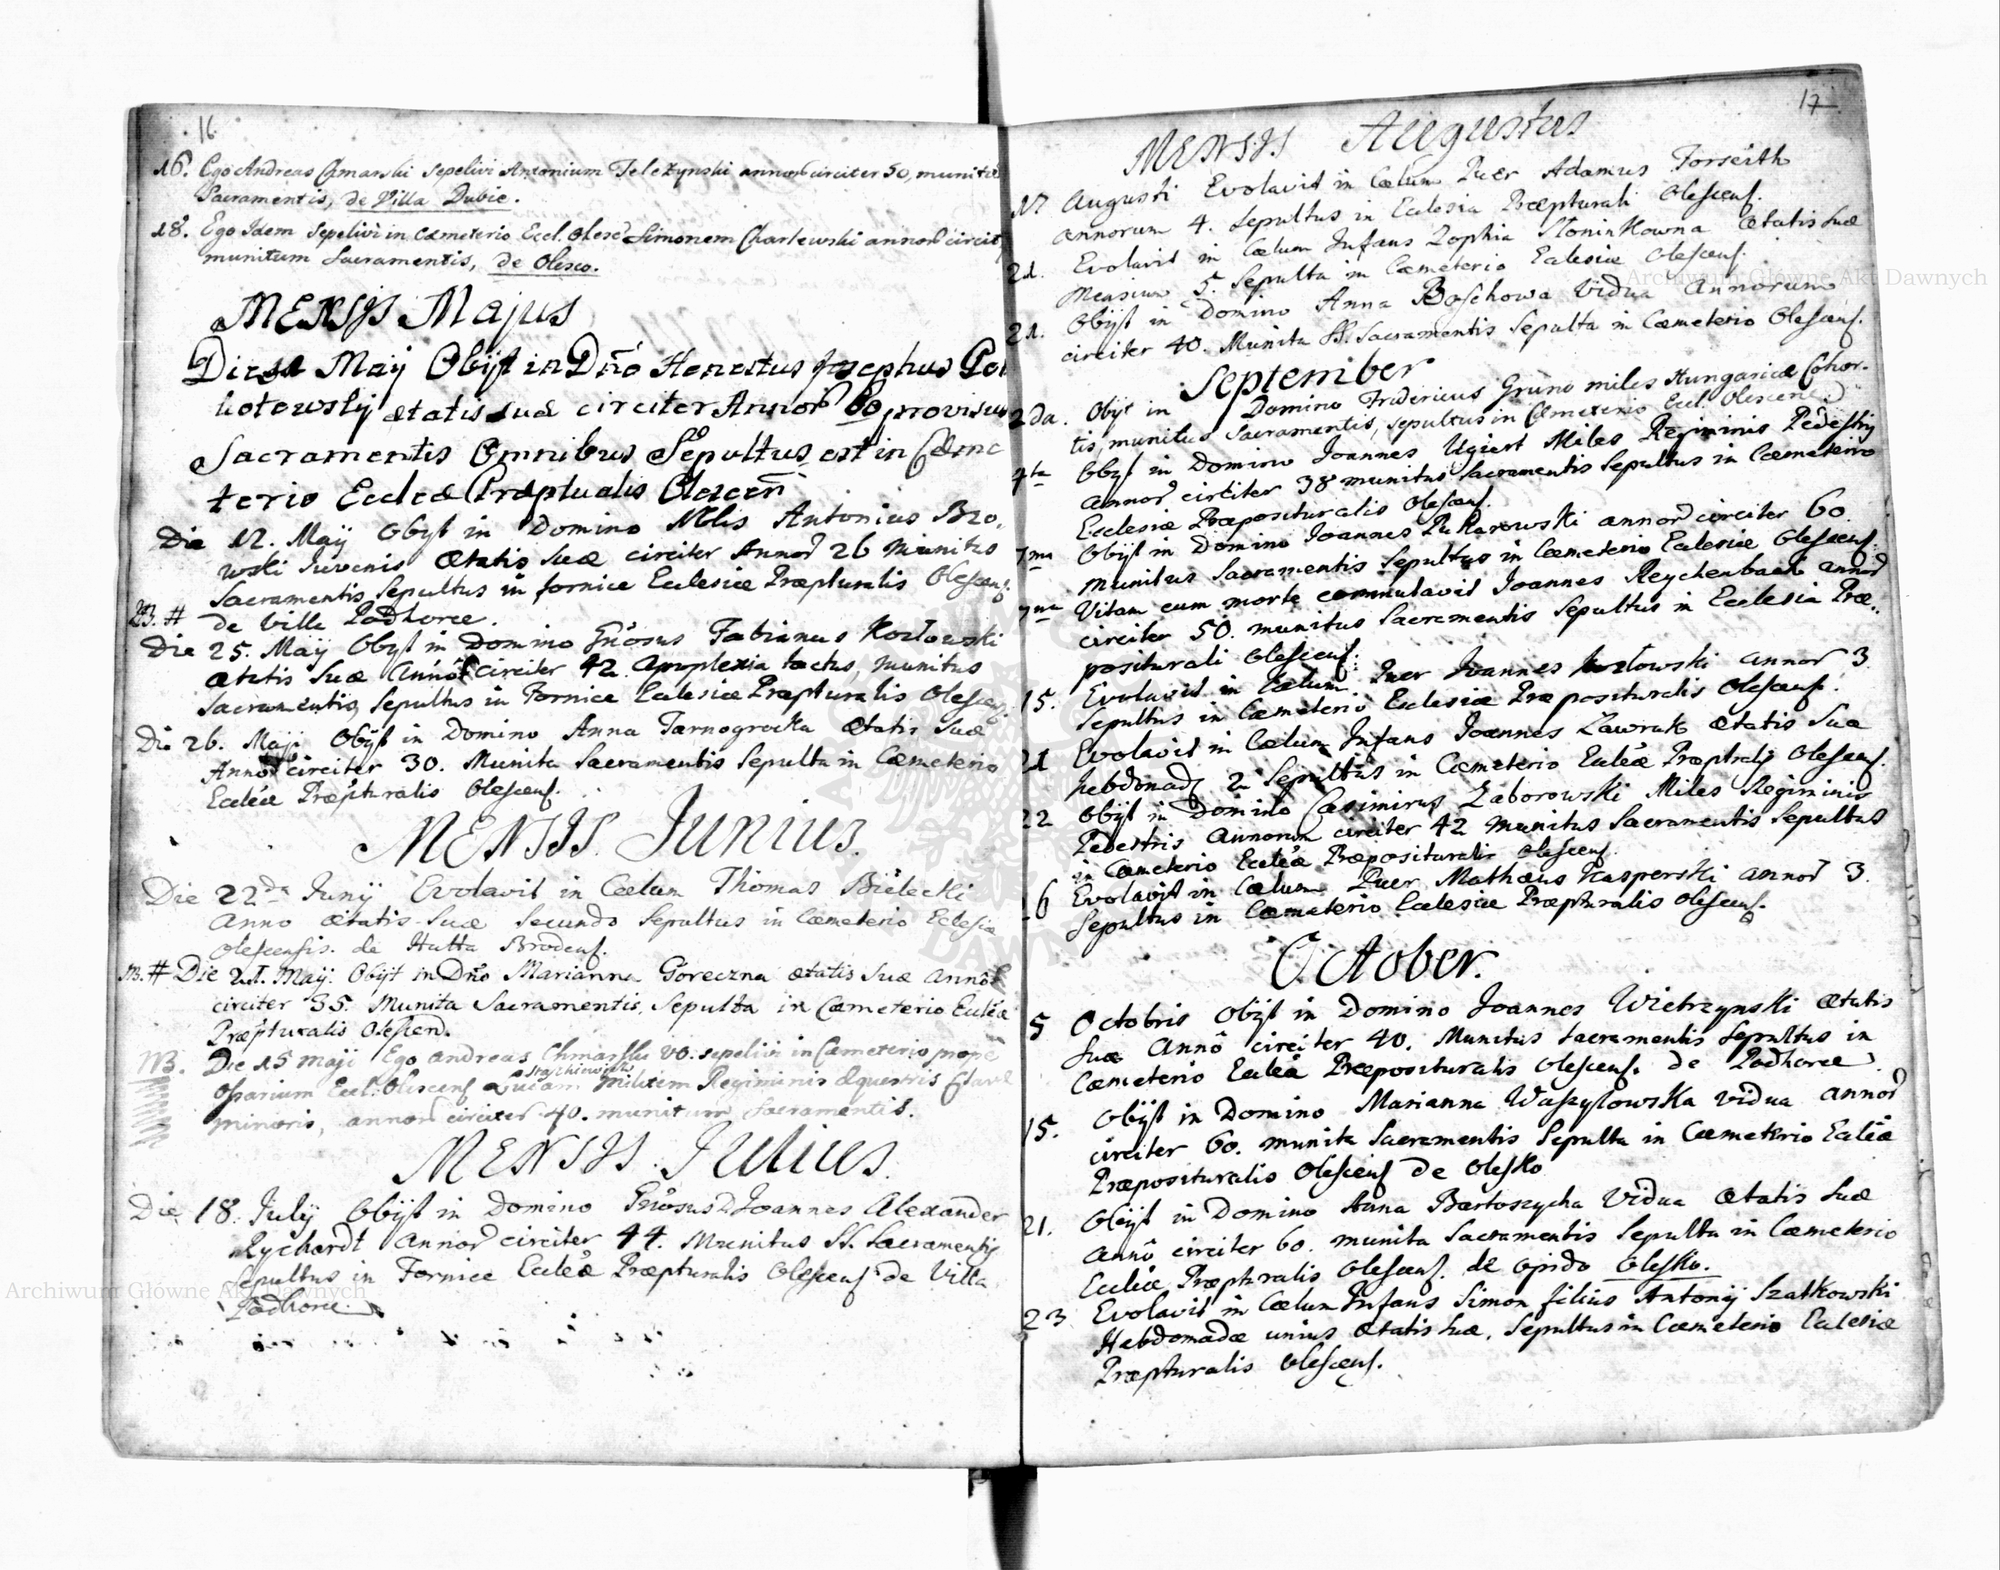 16
16. Ego Andreas Chmarski sepelivi Antonium Teletynski annor circiter 50, munitū
Sacramentis, de Villa Dubie.
18. Ego Idem sepelivi in Cæmeterio Eccl. Olesc Simonem Charlewski annor circit
munitum Sacramentis, de Olesco.
MENSIS Majus
Die Maij Obijt in Dno Honestus Josephus
ætatis suæ circiter Annor 60 provisus
Sacramentis Omnibus Sepultus est in Cæme
terio Eccleæ Præptualis Olescen
Die 12. Maij Obijt in Domino Nblis Antonius Bro,
wski Iuvenis Ætatis Suæ circiter Annor 26 Munitus
Sacramentis Sepultus in fornice Ecclesiæ Præpturalis Olescens:
de Villa Podhorce.
NB. #
Die 25. Maij Obijt in Domino Gnosus Fabianus Kozłowski
Ætatis Suæ Annor circiter 42 Apoplexia tactus, munitus
Sacramentis, Sepultus in Fornice Ecclesiæ Præpturalis Olescen:
Die 26. Maji Obijt in Domino Anna Tarnogrocka Ætatis Suæ
Annor circiter 30. Munita Sacramentis Sepulta in Cæmeterio
Eccleæ Præpturalis Olescens.
MENSIS. Junius.
Die 22da Junij Evolavit in Cœlum Thomas Bielecki
Anno ætatis suæ secundo Sepultus in Cæmeterio Eclesiæ
Olescensis. de Hutta Brodens.
NB. # Die 21. Maij. Obijt in Dno Marianna Goreczna ætatis suæ annor
circiter 35. Munita Sacramentis, sepulta in Cæmeterio Eccleæ
Præpturalis Olescen.
NB. Die 15 maji Ego Andreas Chmarski VD. sepelivi in Cæmeterio prope
Ossarium Eccl. Olescens Lucam Stachiewicz Militem Regiminis Equestris
minoris, annor circiter 40. munitum Sacramentis.
MENSIS. Julius.
Die 18. Julij Obijt in Domino Gnosus Joannes Alexander
Rychardt Annor circiter 44. Munitus SS. Sacramentis
Sepultus in Fornice Eccleæ Præpturalis Olescens de Villa
Podhorce.
17
MENSIS Augustus
17 Augusti Evolavit in Cœlum Puer Adamus Forseith
annorum 4. Sepultus in Eclesia Præpturali Olescens.
21. Evolavit in Cœlum Infans Zophia Słoninkowna Ætatis suæ
Mensium 5. Sepulta in Cæmeterio Eclesiæ Olescens.
21. Obijt in Domino Anna Boschowa Vidua annorum
circiter 40. Munita SS. Sacramentis Sepulta in Cæmeterio Olescens.
September
2da. Obijt in Domino Fridericus Gruno miles Hungaricæ Cohor-
tis, munitus Sacramentis, sepultus in Cæmeterio Eccl. Olescens
4ta Obijt in Domino Joannes Ugiert Miles Regiminis Pedestris
Annor circiter 38 munitus Sacramentis Sepultus in Cæmeterio
Ecclesiæ Præposituralis Olescens.
7ma Obijt in Domino Joannes Pukarowski annor circiter 60
munitus Sacramentis Sepultus in Cæmeterio Eclesiæ Olescens.
7ma Vitam cum morte commutavit Joannes Reychenbach annor
circiter 50. munitus Sacramentis Sepultus in Ecclesia Præ-
positurali Olescens:
15. Evolavit in Cœlum Puer Joannes Kozłowski Annor 3.
Sepultus in Cæmeterio Eclesiæ Præposituralis Olescens.
21 Evolavit in Cœlum Infans Joannes Lawruk Ætatis Suæ
hebdomad 2 Sepultus in Cæmeterio Eccleæ Præptralis Olescens.
22 Obijt in Domino Casimirus Zaborowski Miles Regiminis
Pedestris Annorum circiter 42 munitus Sacramentis Sepultus
in Cæmeterio Eccleæ Præposituralis Olescens.
26 Evolavit in Cœlum Puer Mathæus Kasperski annor 3.
Sepultus in Cæmeterio Eclesiæ Præpturalis Olescens.
October.
5 Octobris Obijt in Domino Joannes Wietrzynski Ætatis
Suæ Annô circiter 40. Munitus Sacramentis Sepultus in
Cæmeterio Eccleæ Præposituralis Olescens. de Podhorce.
15. Obijt in Domino Marianna Waszylowska vidua annor
circiter 60. munita Sacramentis Sepulta in Cæmeterio Eccleæ
Præposituralis Olescens de Olesko
21. Obijt in Domino Anna Bartoszycha Vidua Ætatis Suæ
Annô circiter 60. munita Sacramentis Sepulta in Cæmeterio
Eccleæ Præpturalis Olescens. de opido Olesko.
23 Evolavit in Cœlum Infans Simon filius Antonij Szatkowski
Hebdomadæ unius Ætatis suæ. Sepultus in Cæmeterio Eclesiæ
Præpturalis Olescens.
Archiwum Główne Akt Dawnych
Archiwum Główne Akt Dawnych